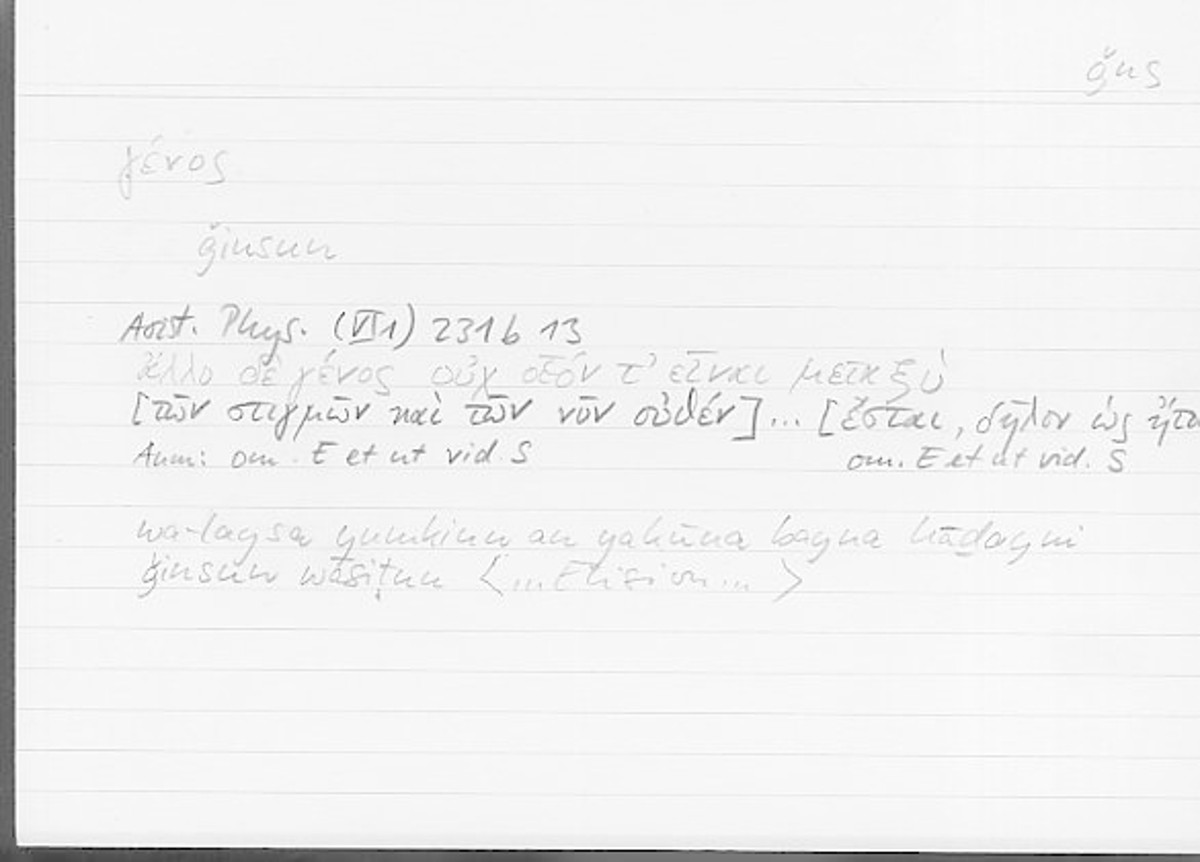 ǧns
γένος
ǧinsun
Arist. Phys. (VI 1) 231 b 13
ἄλλο δὲ γένος οὐχ οἷόν τ' εἶναι μεταξὺ
[τῶν στιγμῶν καὶ τῶν νῦν οὐθέν]... [ἔσται, δῆλον ὡς ἤτο
Anm: om. E et ut vid. S om. E et ut vid. S
wa-laysa yumkinu an yakūna bayna hāḏayni
ǧinsun wāsiṭun <...Elision...>